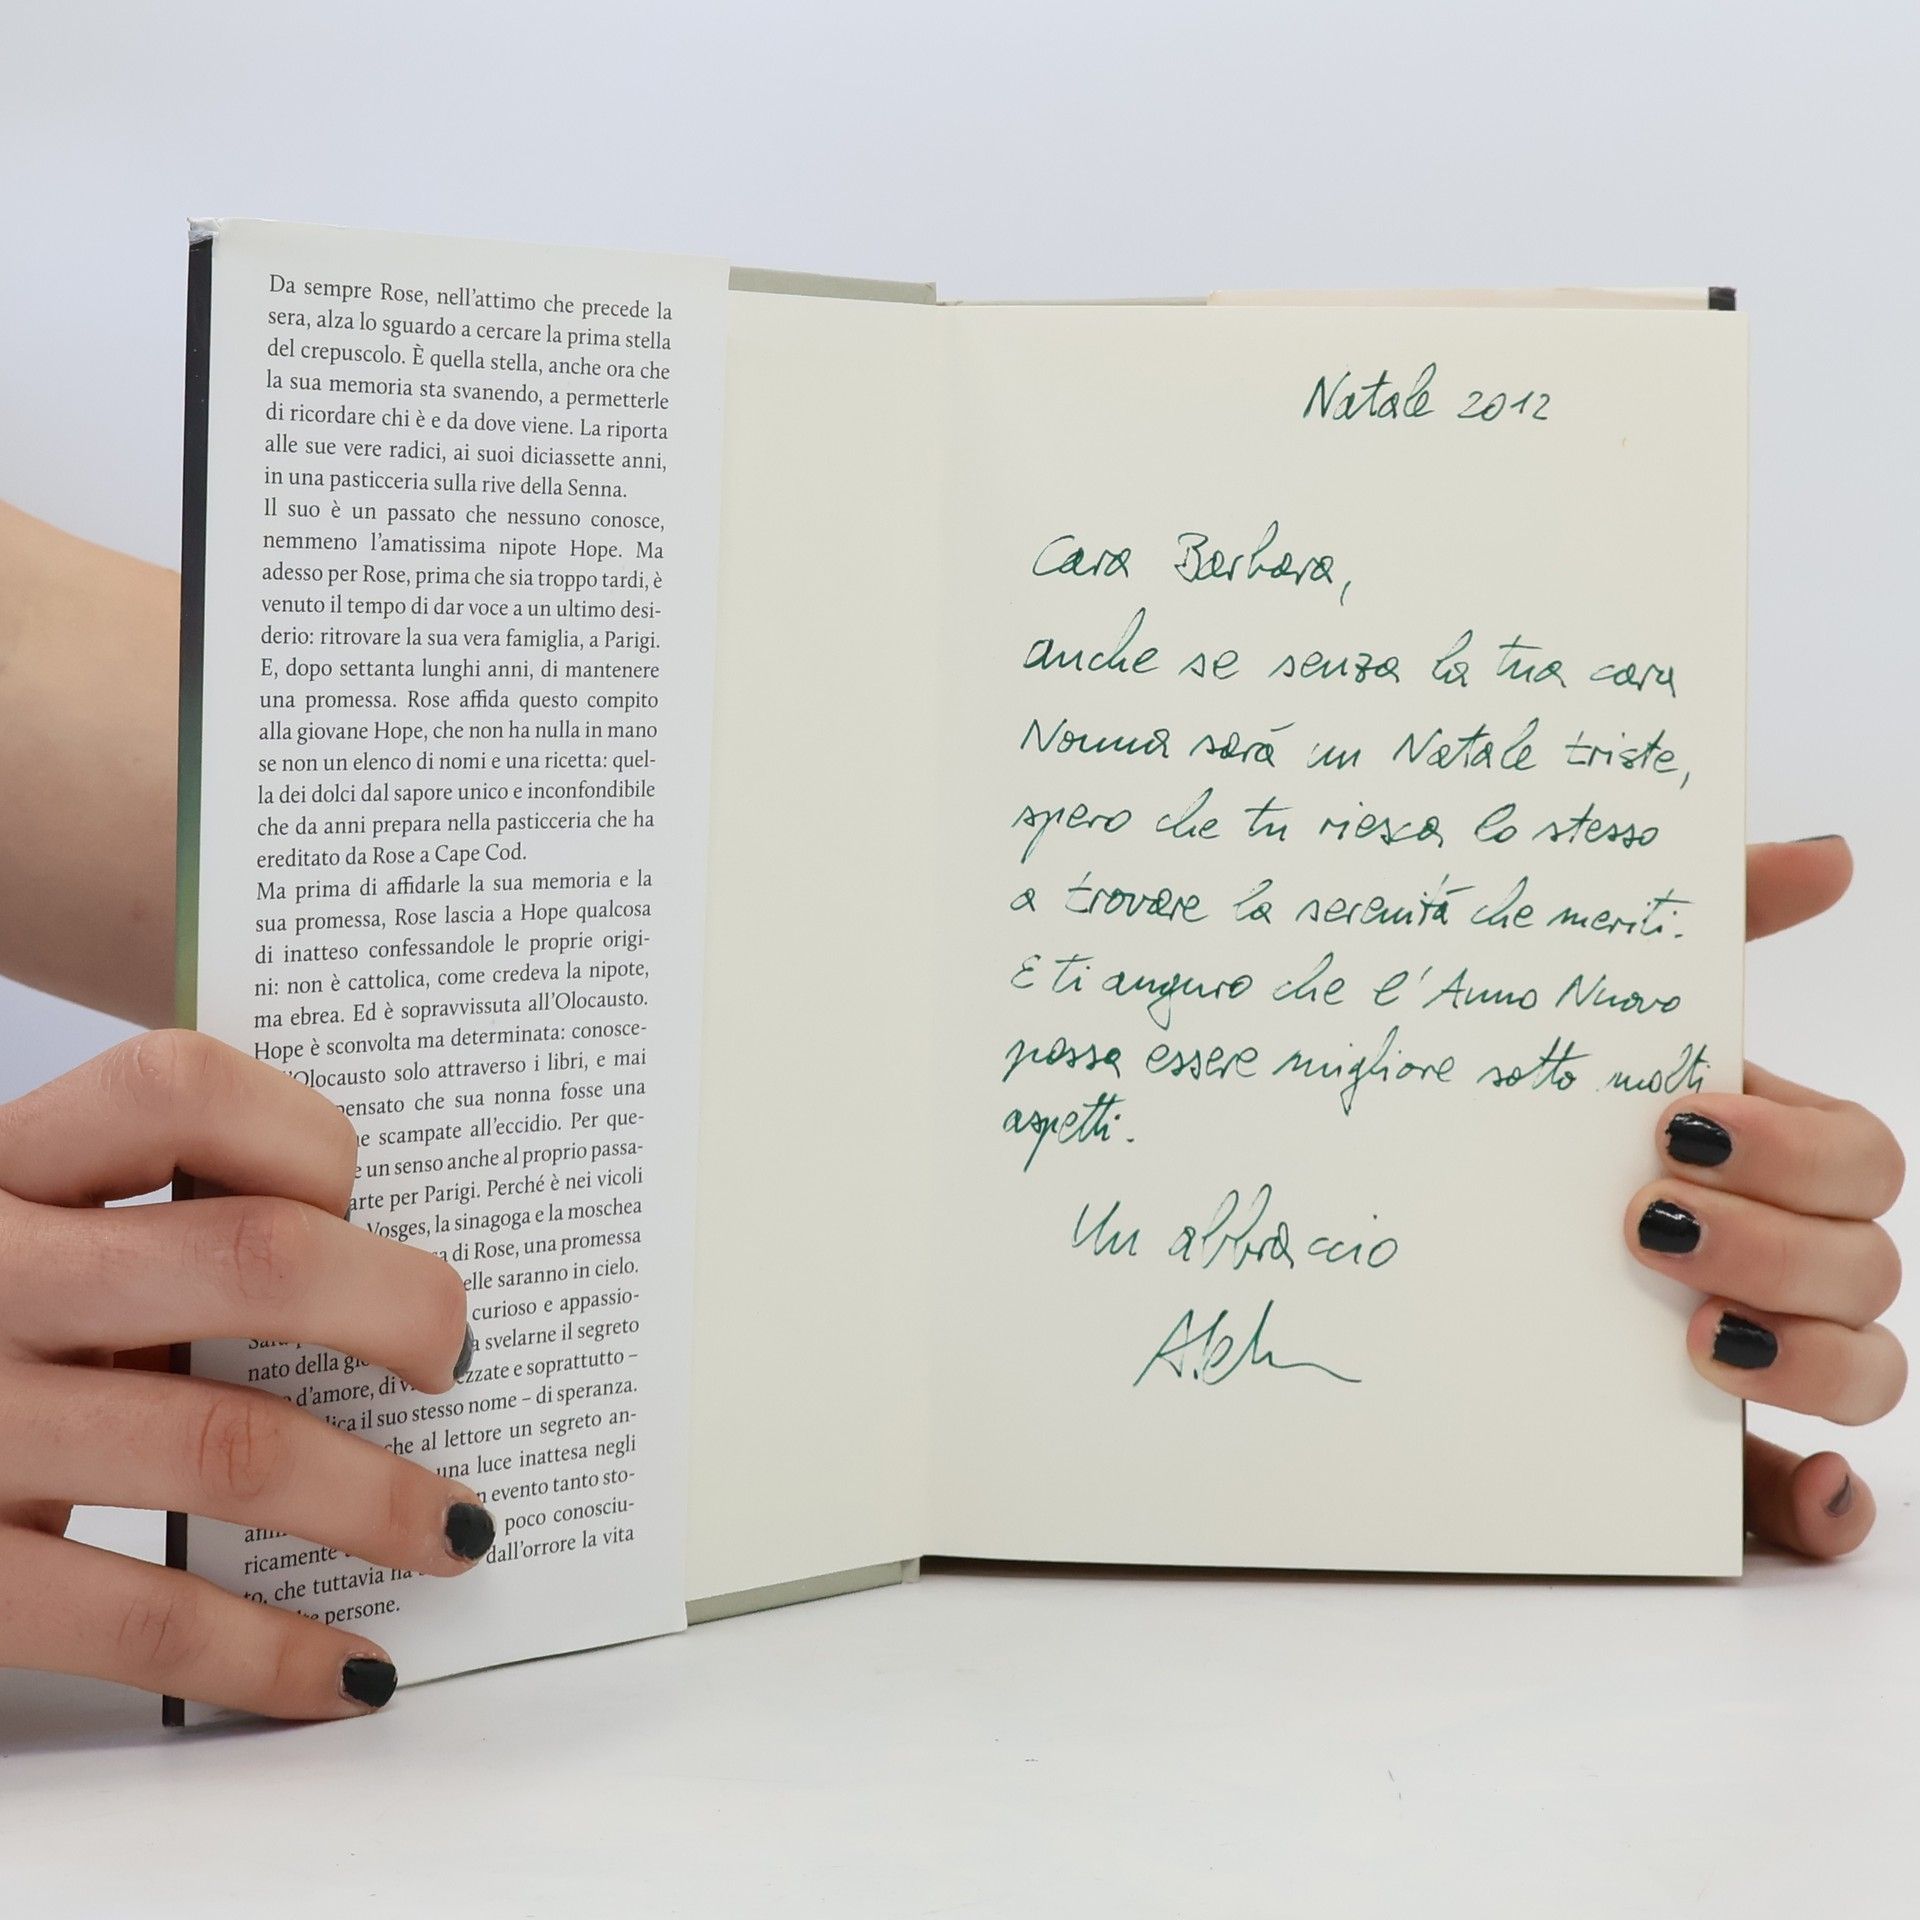 Da sempre Rose, nell'attimo che precede la
sera, alza lo sguardo a cercare la prima stella
del crepuscolo. È quella stella, anche ora che
la sua memoria sta svanendo, a permetterle
di ricordare chi è e da dove viene. La riporta
alle sue vere radici, ai suoi diciassette anni,
in una pasticceria sulla rive della Senna.
Il suo è un passato che nessuno conosce,
nemmeno l'amatissima nipote Hope. Ma
adesso per Rose, prima che sia troppo tardi, è
venuto il tempo di dar voce a un ultimo desi-
derio: ritrovare la sua vera famiglia, a Parigi.
E, dopo settanta lunghi anni, di mantenere
una promessa. Rose affida questo compito
alla giovane Hope, che non ha nulla in mano
se non un elenco di nomi e una ricetta: quel-
la dei dolci dal sapore unico e inconfondibile
che da anni prepara nella pasticceria che ha
ereditato da Rose a Cape Cod.
Ma prima di affidarle la sua memoria e la
sua promessa, Rose lascia a Hope qualcosa
di inatteso confessandole le proprie origi-
ni: non è cattolica, come credeva la nipote,
ma ebrea. Ed è sopravvissuta all'Olocausto.
Hope è sconvolta ma determinata: conosce-
l'Olocausto solo attraverso i libri, e mai
pensato che sua nonna fosse una
scampate all'eccidio. Per que-
un senso anche al proprio passa-
per Parigi. Perché è nei vicoli
Vosges, la sinagoga e la moschea
di Rose, una promessa
saranno in cielo.
curioso e appassio-
svelarne il segreto
nato della
e soprattutto –
d'amore, di
il suo stesso nome – di speranza.
che al lettore un segreto an-
una luce inattesa negli
evento tanto sto-
poco conosciu-
ricamente
dall'orrore la vita
to, che tuttavia ha
persone.
Natale 2012
Cara Barbara,
anche se senza la tua cara
Nonna sarà un Natale triste,
spero che tu riesca lo stesso
a trovare la serenità che meriti.
E ti auguro che l'Anno Nuovo
possa essere migliore sotto molti
aspetti.
Un abbraccio